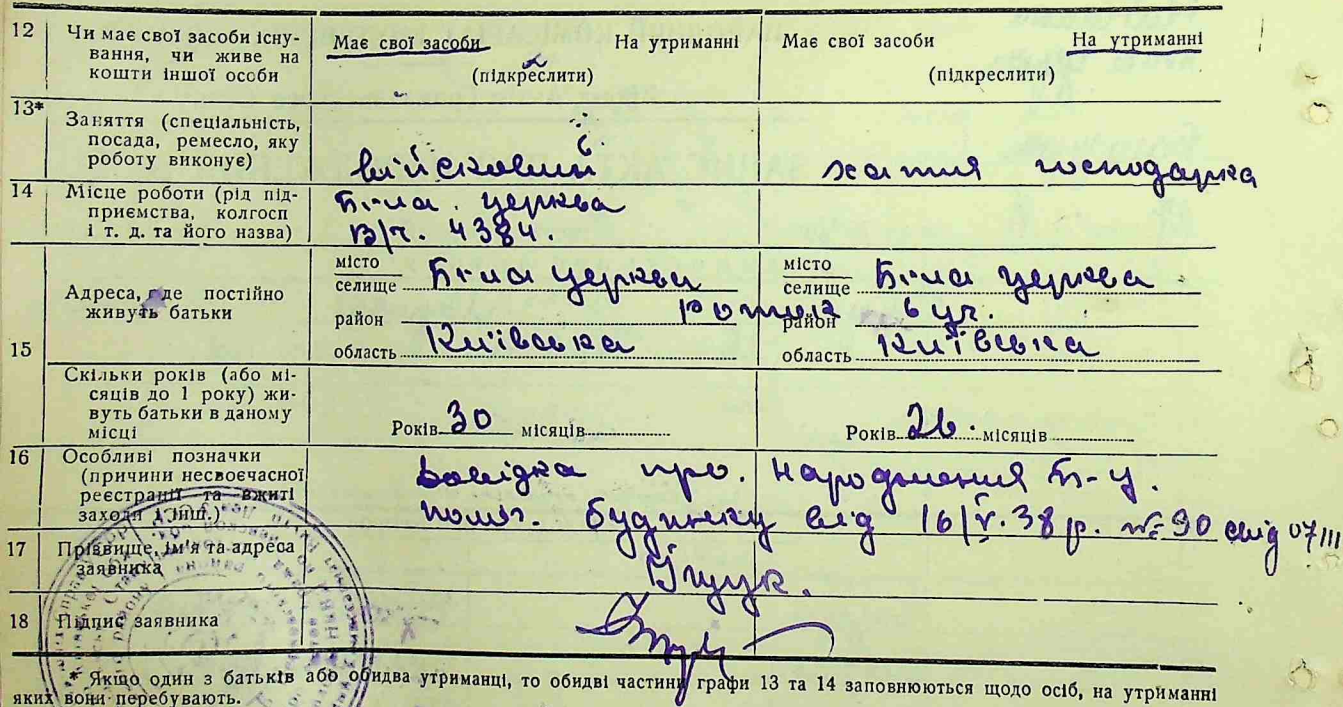 12 Чи має свої засоби існу-
вання, чи живе на
кошти іншої особи
Має свої засоби На утриманні Має свої засоби На утриманні
(підкреслити) (підкреслити)
13* Заняття (спеціальність,
посада, ремесло, яку
роботу виконує)
військовий хатня господарка
14 Місце роботи (рід під-
приємства, колгосп
і т. д. та його назва)
Біла церква
В/ч. 4384.
15 Адреса, де постійно
живуть батьки
місто
селище Біла церква
район
область Київська
місто
селище Біла церква
район
область Київська
Скільки років (або мі-
сяців до 1 року) жи-
вуть батьки в даному
місці
Років 30 місяців Років 26. місяців
16 Особливі позначки
(причини несвоєчасної
реєстрації та вжиті
заходи і інш.)
про. народження Б-Ц.
будинку від 16/V.38 р. № 90
17 Прізвище, ім'я та адреса
заявника
18 Підпис заявника
* Якщо один з батьків або обидва утриманці, то обидві частини графи 13 та 14 заповнюються щодо осіб, на утриманні
яких вони перебувають.